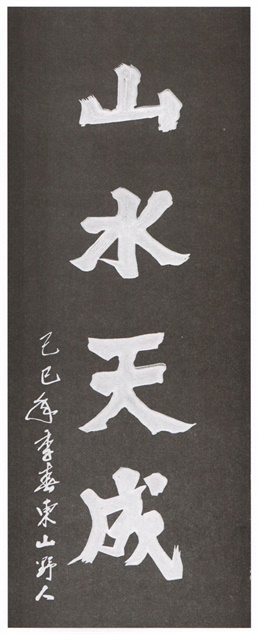 山水天成
己巳年季春東山野人